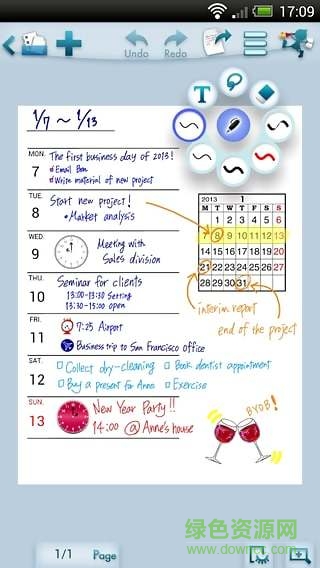 17:09
Undo Redo
T
1/7 ~ 1/13
MON.
7
The first business day of 2013!
Email Box
Write material of new project
TUE.
8
Start new project!
Market analysis
WED.
9
Meeting with
Sales division
THU.
10
Seminar for clients
13:00-13:30 Setting
13:30-15:00 open
FRI.
11
7:25 Airport
Business trip to San Francisco office
SAT.
12
Collect dry-cleaning
Book dentist appointment
Buy a present for Anne
Exercise
SUN.
13
New Year Party!!
14:00 @ Anne's house
2013 1
M T W T F S S
1 2 3 4 5 6
7 8 9 10 11 12 13
14 15 16 17 18 19 20
21 22 23 24 25 26 27
28 29 30 31
interim report
end of the project
BYOB!
1/1 Page
绿色资源网
www.downcc.com